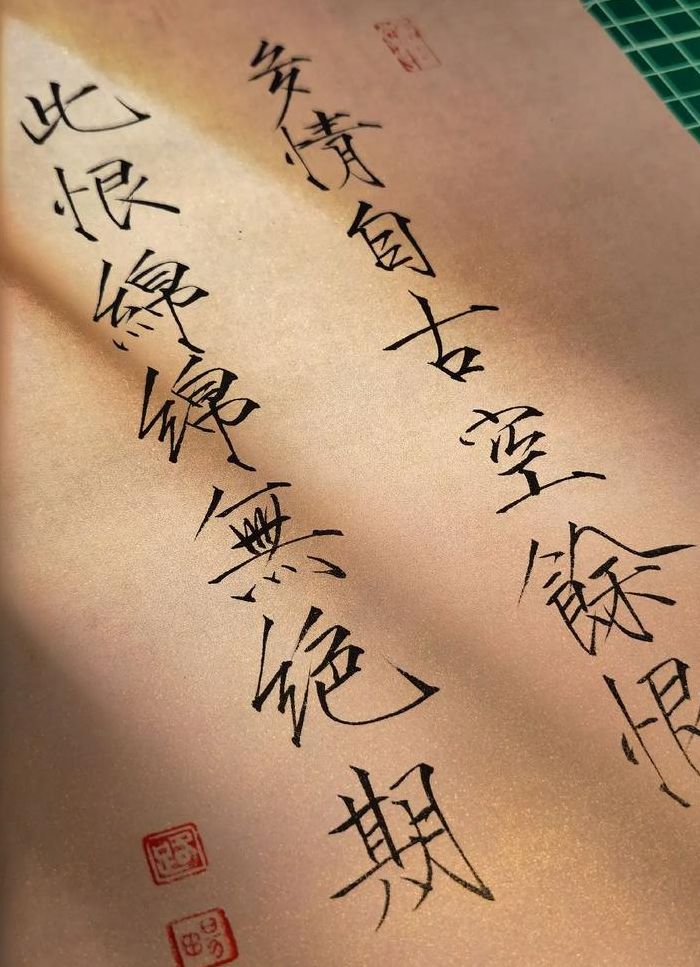 多情自古空餘恨
此恨綿綿無絶期